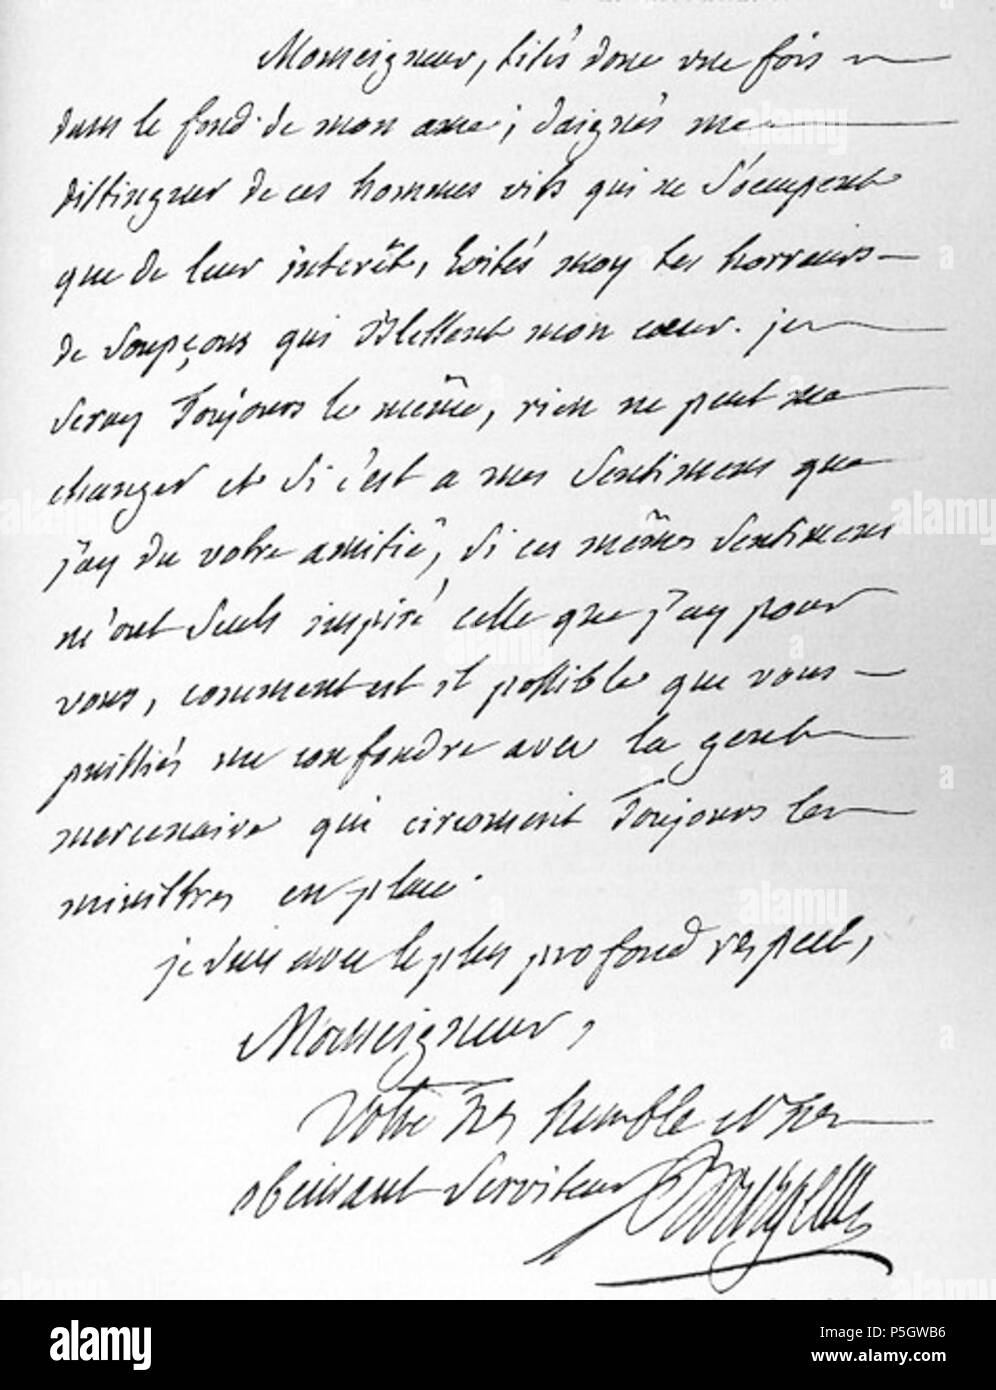 Monseigneur, lisés donc une fois
dans le fond de mon ame; daignés me
distinguer de ces hommes vils qui ne s'ocupent
que de leur interêt, Evités moy les horreurs
de soupçons qui Blessent mon cœur. je
seray Toujours le même, rien ne peut me
changer et si c'est a mes sentimens que
j'ay du votre amitié, si ces mêmes sentimens
m'ont seuls inspiré celle que j'ay pour
vous, comment est il possible que vous
puissiés me confondre avec la gent
mercenaire qui circonvient Toujours les
ministres en place.
je suis avec le plus profond respect,
Monseigneur,
Votre Tres humble et Tres
obeissant serviteur Bourgelat
alamy
Image ID: P5GWB6
www.alamy.com